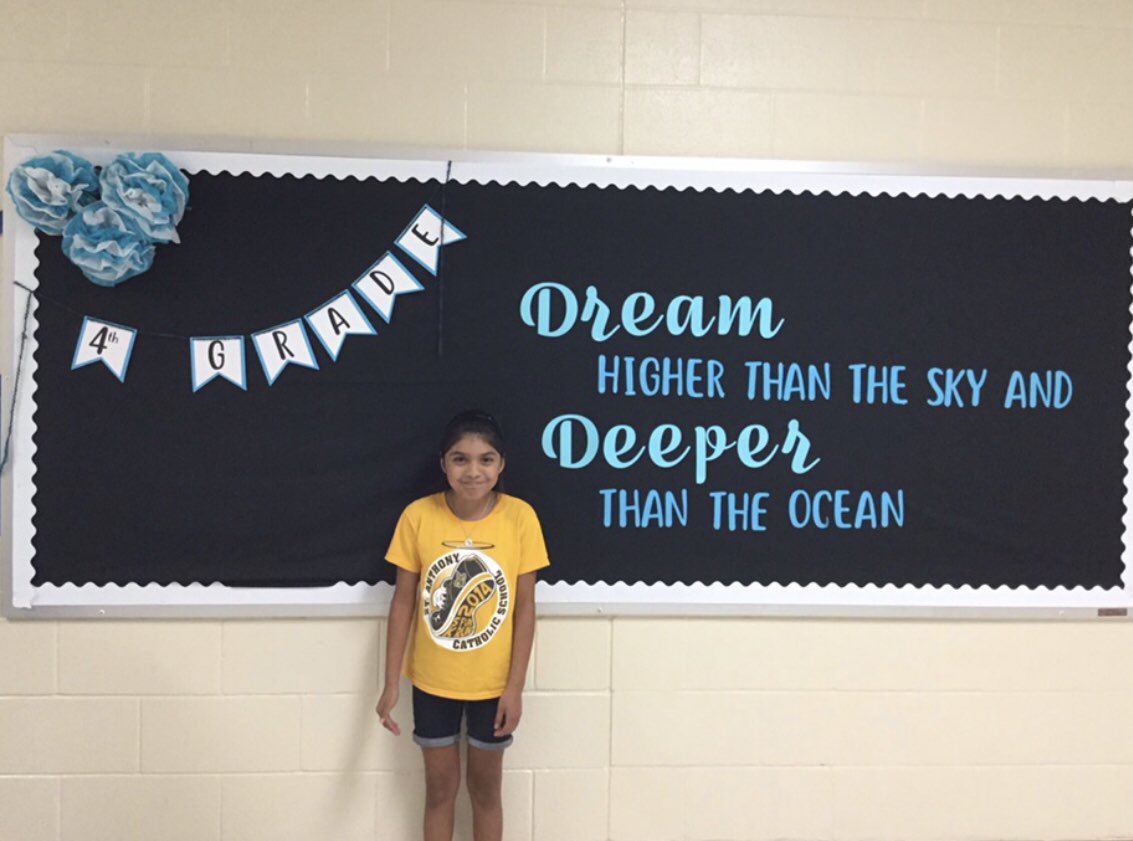 4th GRADE
Dream
HIGHER THAN THE SKY AND
Deeper
THAN THE OCEAN
ST. ANTHONY
2014
CATHOLIC SCHOOL